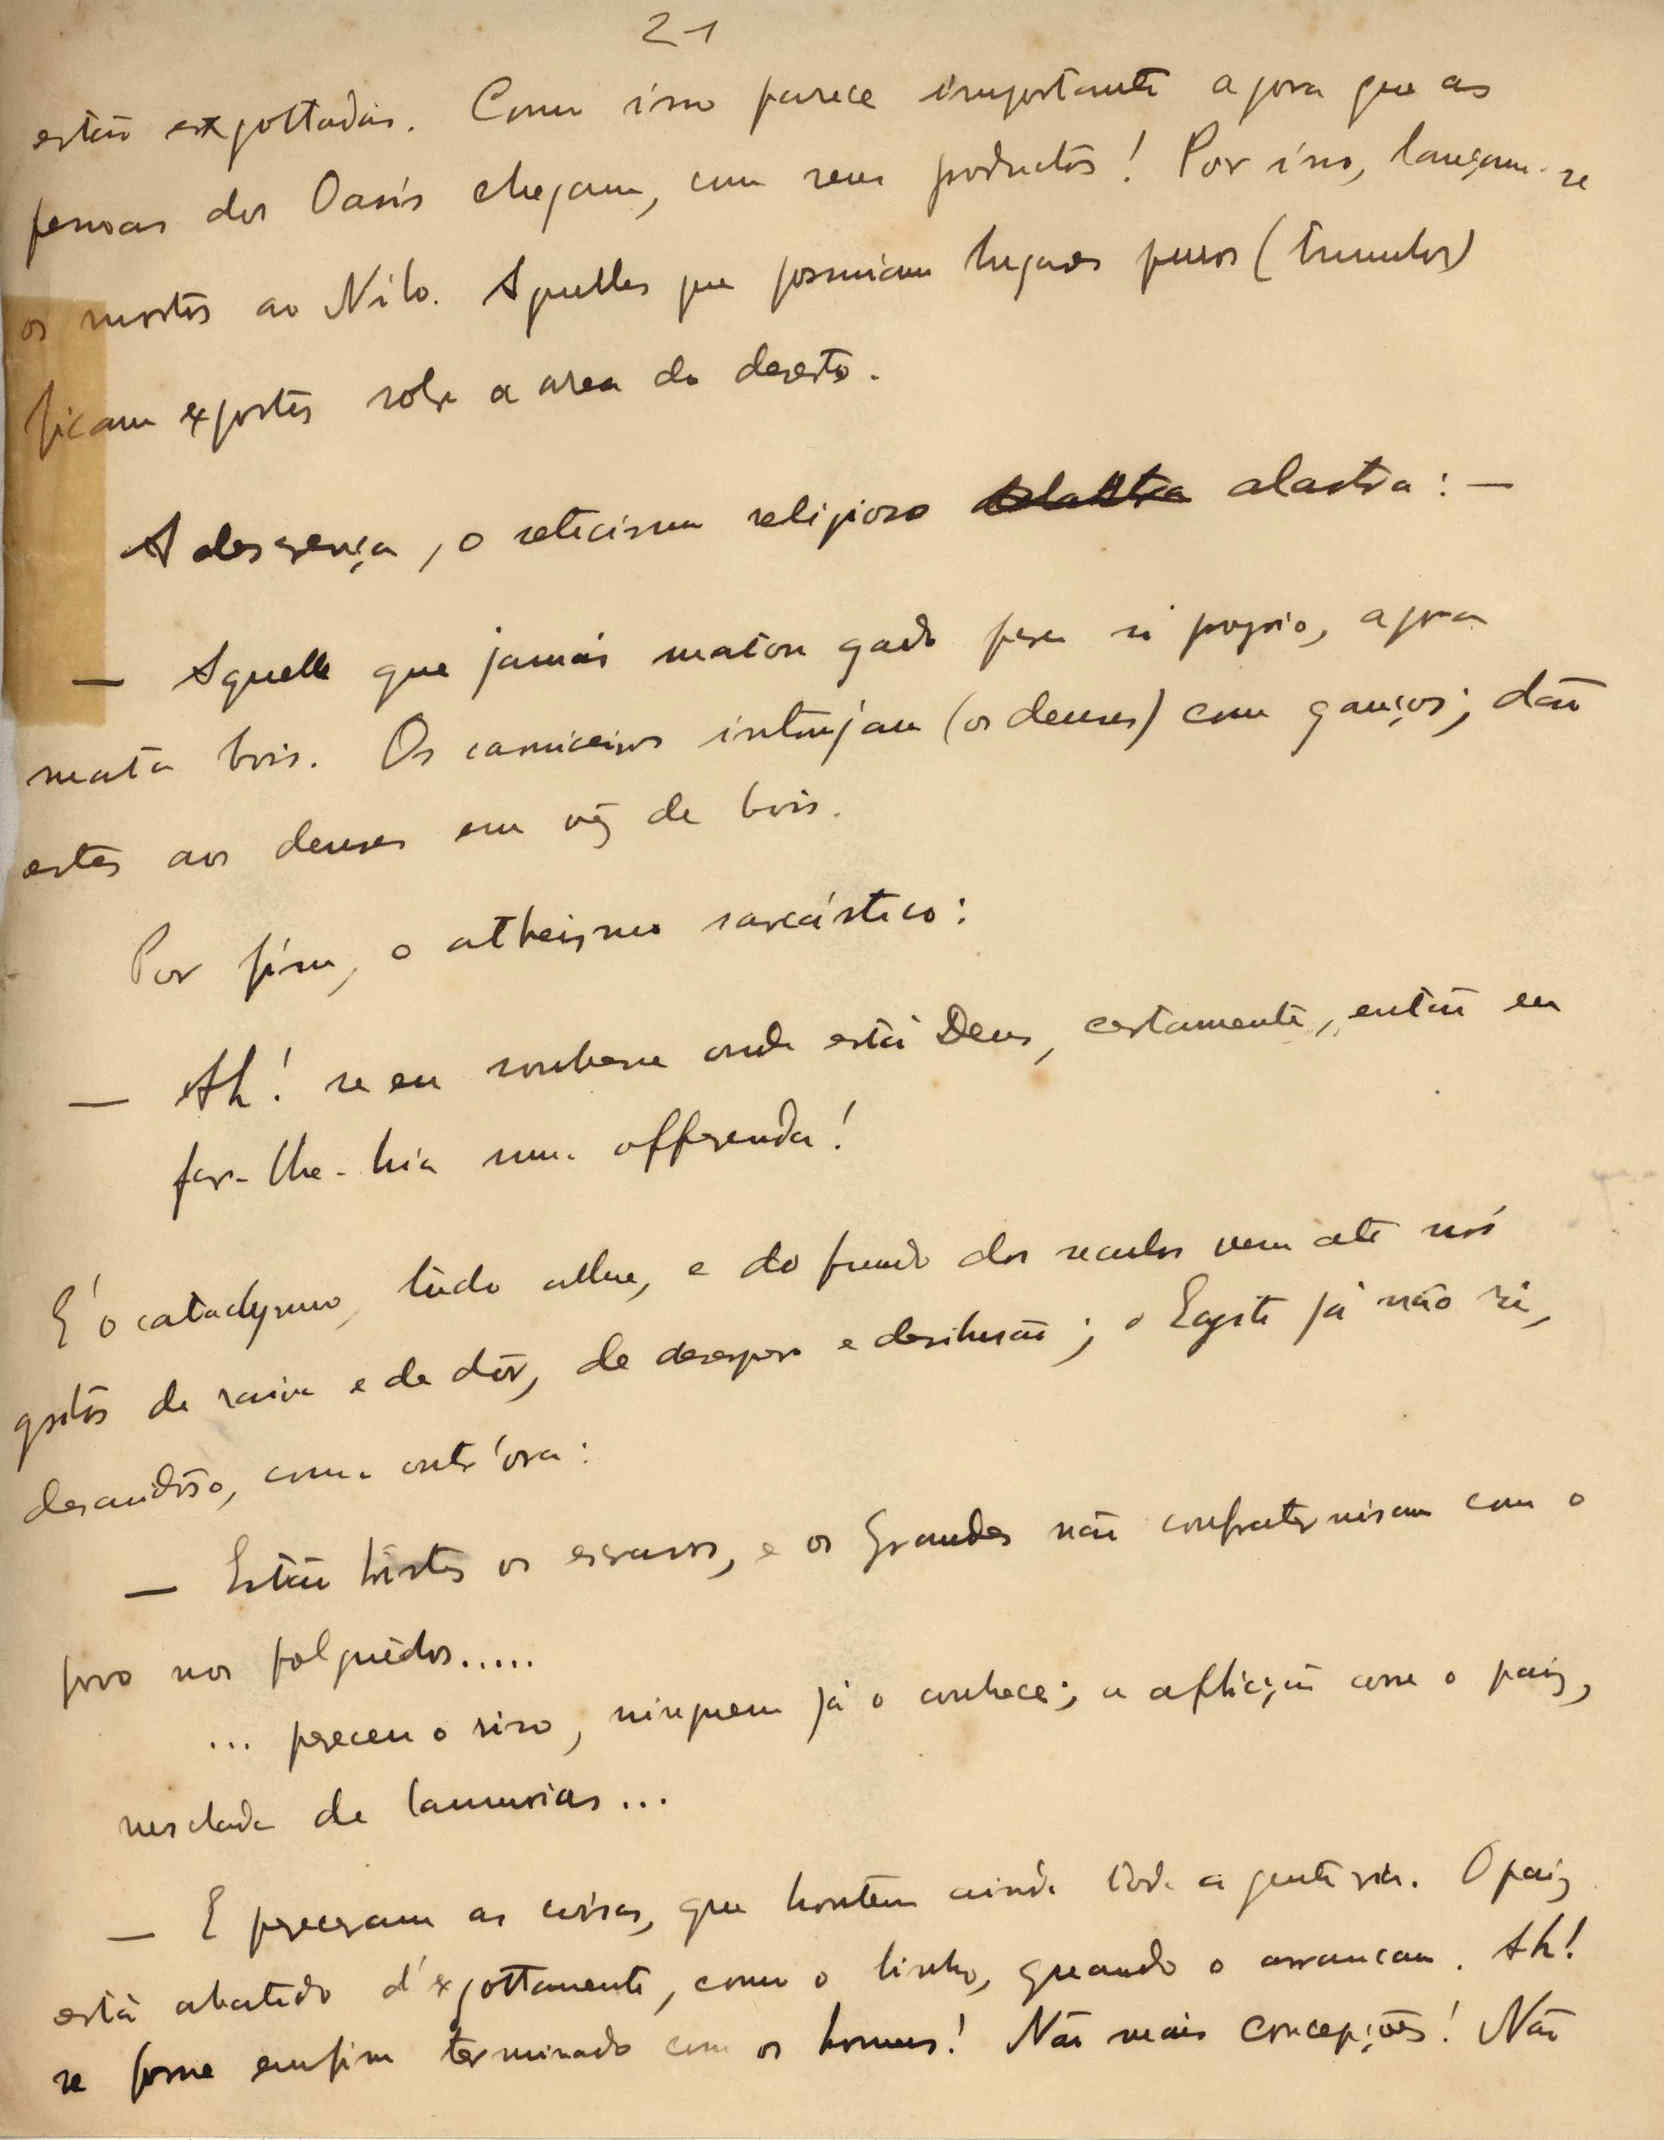 21
estão exgottadas. Como isso parece importante agora que as
pessoas dos Oasis chegam, com seus productos! Por isso, lançam-se
os mortos ao Nilo. Aquelles que possuiam lugares puros (tumulos)
ficam expostos sobre a area do deserto.
A descrença, o seticismo religioso alastra alastra: —
— Aquelle que jamais matou gado para si proprio, agora
mata bois. Os carniceiros intrujam (os deuses) com gansos; dão
estes aos deuses em vêz de bois.
Por fim, o atheismo sarcástico:
— Ah! se eu soubesse onde está Deus, certamente, então eu
far-lhe-hia uma offerenda!
E' o cataclysmo, tudo allue, e do fundo dos seculos vem até nós
gritos de raiva e de dôr, de desespero e desilusão; o Egito já não ri,
descuidoso, como outr'ora:
— Estão tristes os escravos, e os Grandes não confraternisam com o
povo nos folguêdos.....
... pereceu o riso, ninguem já o conhece; a aflicção corre o paiz,
mesclada de lamurias...
— E pereceram as coisas, que hontem ainda toda a gente via. O paiz
está abatido d'exgottamento, como o linho, quando o arrancam. Ah!
se fosse emfim terminado com os homens! Não mais concepções! Não